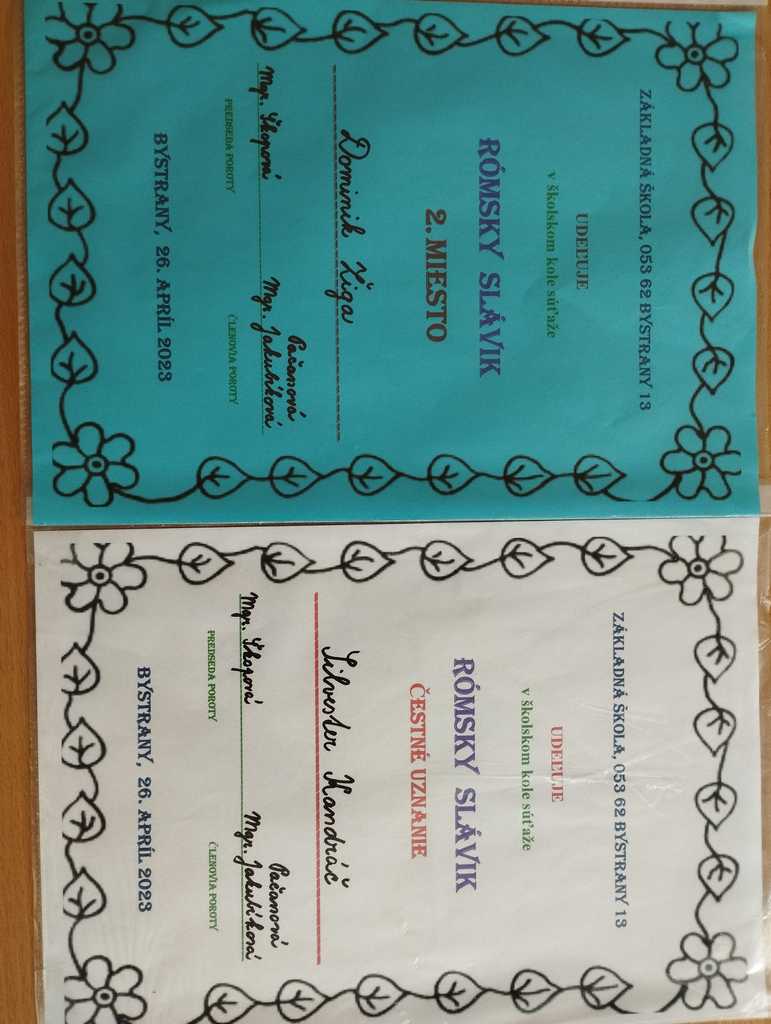 ZÁKLADNÁ ŠKOLA, 053 62 BYSTRANY 13
UDEĽUJE
v školskom kole súťaže
RÓMSKY SLÁVIK
2. MIESTO
Dominik Žiga
Mgr. Škopová
Pačanová
Mgr. Jakubíková
PREDSEDA POROTY
ČLENOVIA POROTY
BYSTRANY, 26. APRÍL 2023
ZÁKLADNÁ ŠKOLA, 053 62 BYSTRANY 13
UDEĽUJE
v školskom kole súťaže
RÓMSKY SLÁVIK
ČESTNÉ UZNANIE
Silvester Kandráč
Mgr. Škopová
Pačanová
Mgr. Jakubíková
PREDSEDA POROTY
ČLENOVIA POROTY
BYSTRANY, 26. APRÍL 2023